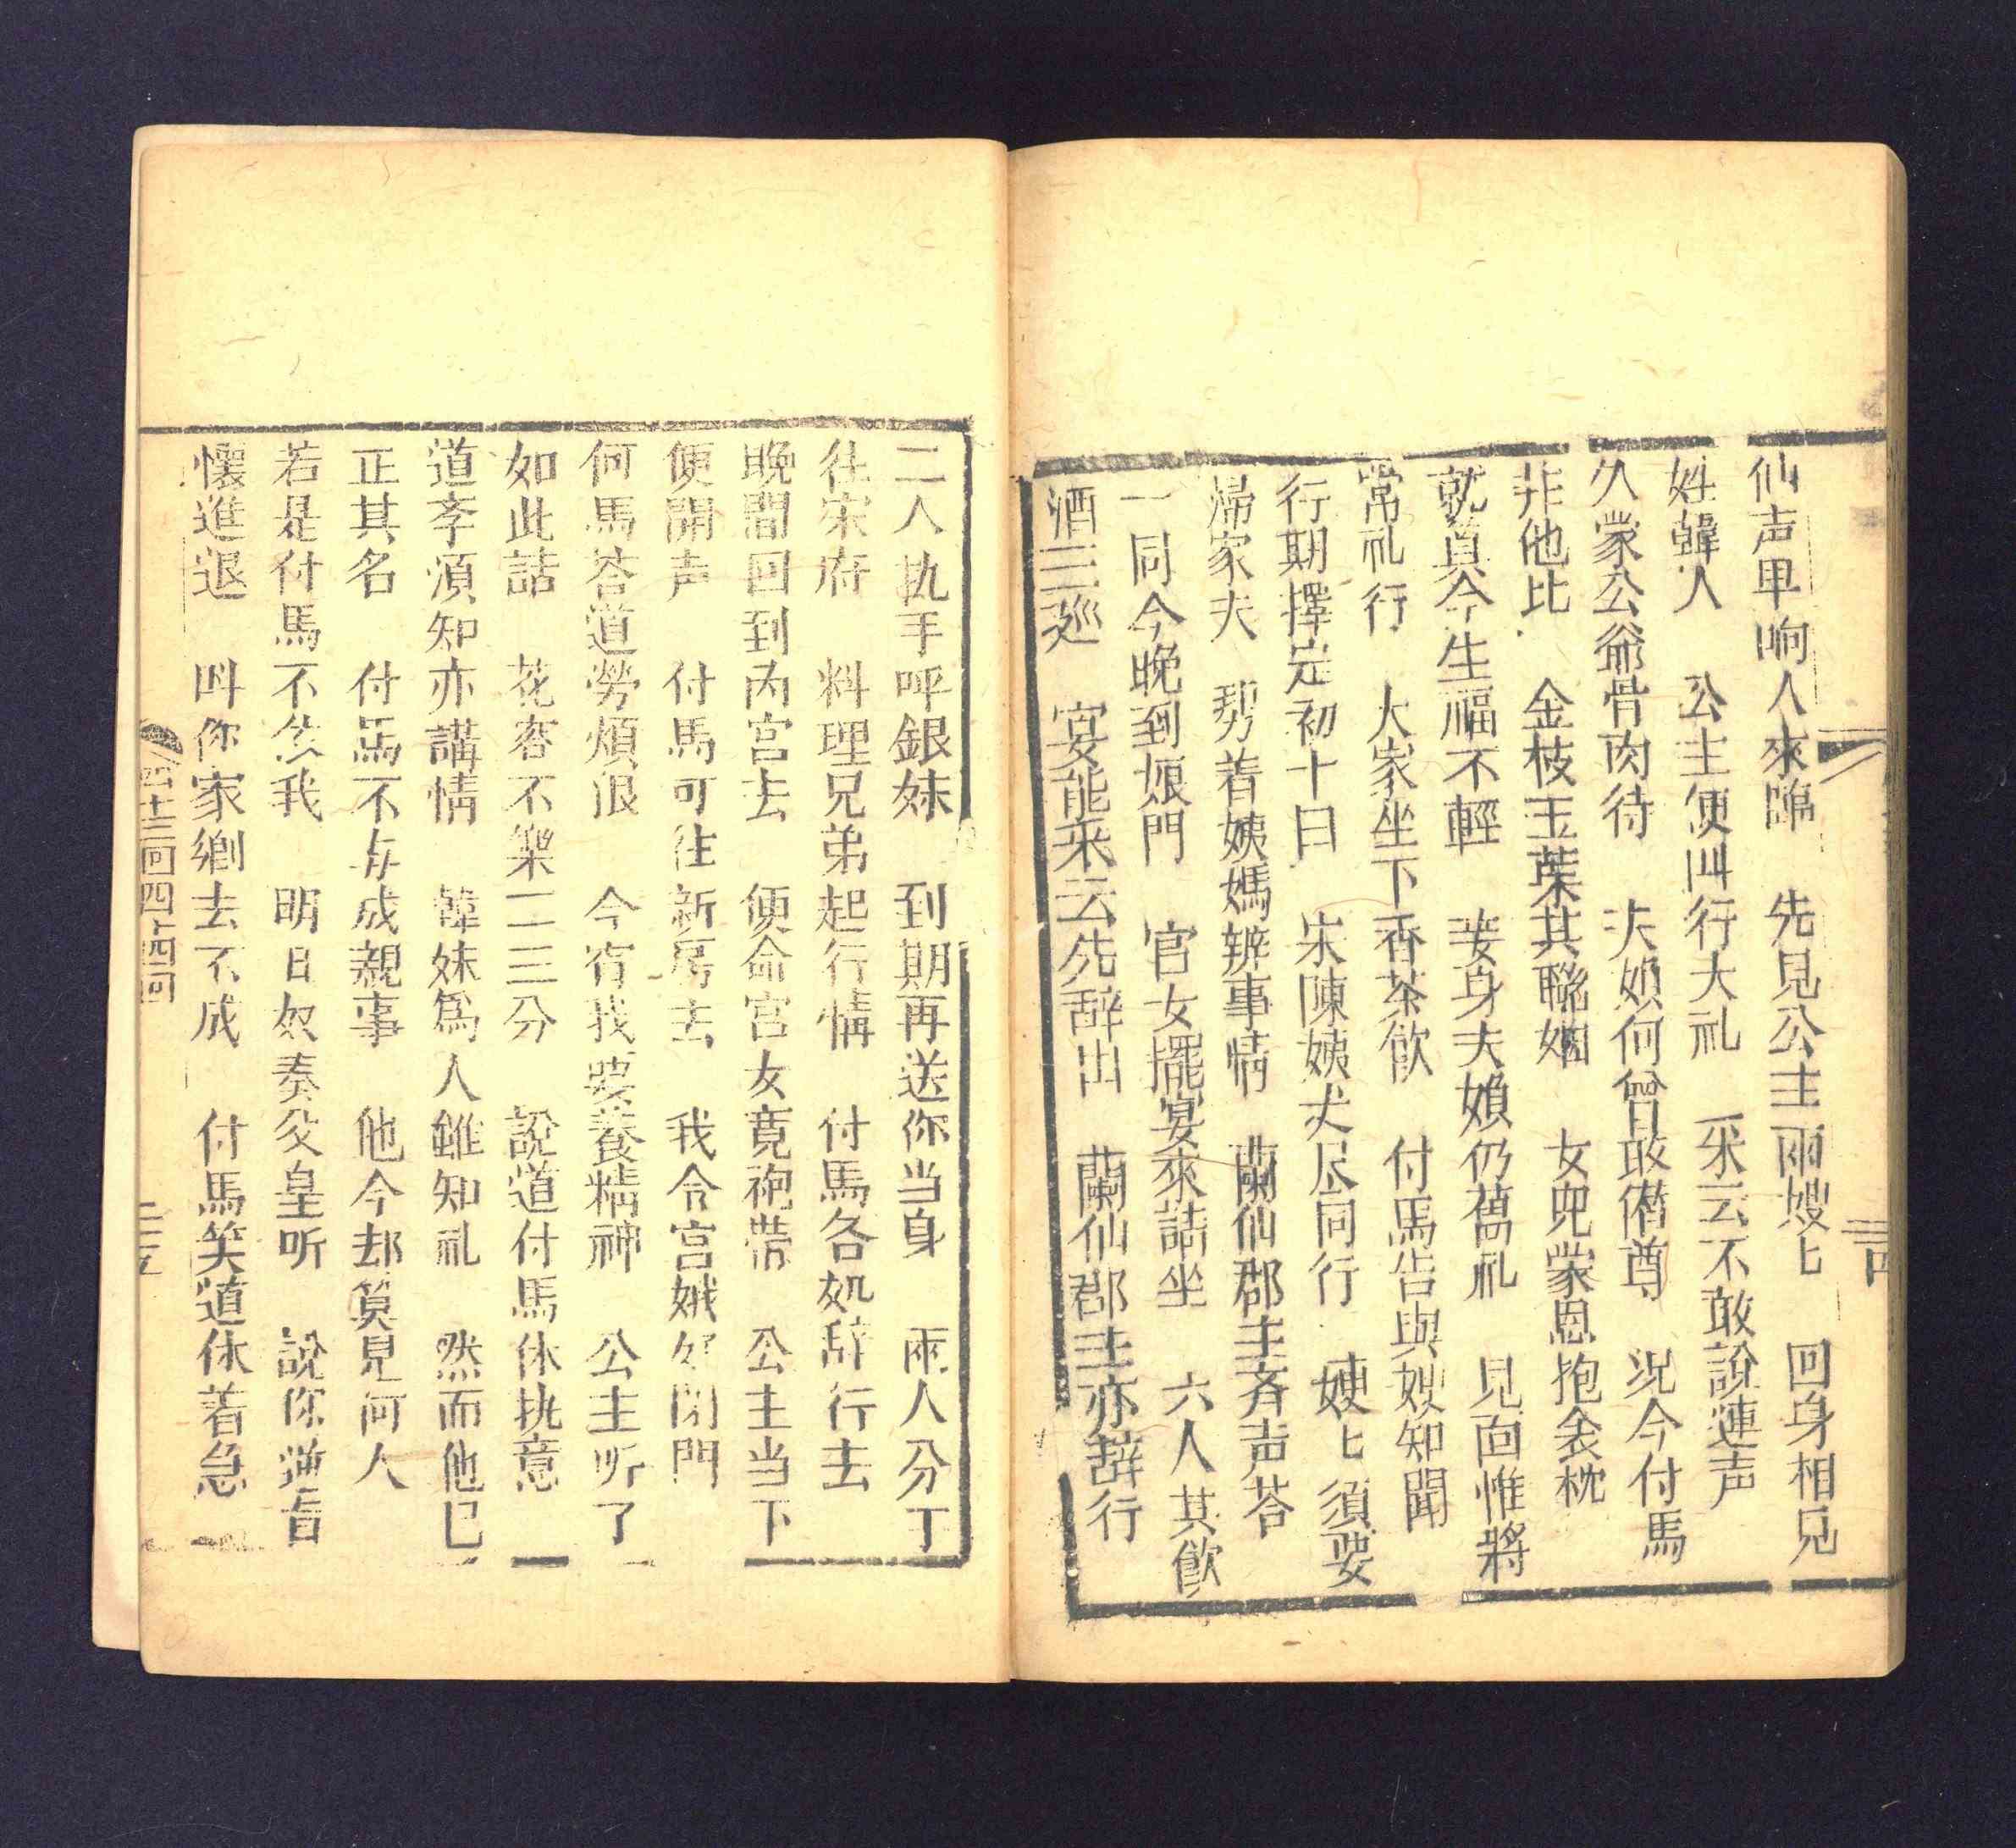 仙声甲响人來臨　先見公主兩嫂〻　回身相見
姓韓人　公主便叫行大礼　采云不敢說連声
久蒙公爺骨肉待　夫娘何曾敢僭尊　况今付馬
非他比　金枝玉葉其聯姻　女兜蒙恩抱衾枕
就真今生福不輕　妾身夫娘仍舊礼　見面惟將
常礼行　大家坐下香茶飲　付馬告與嫂知聞
行期擇定初十日　宋陳姨丈尽同行　嫂〻須要
歸家去　帮着姨媽辨事情　蘭仙郡主斉声荅
一同今晚到娘門　官女擺宴來請坐　六人其飲
酒三廵　宴能采云先辞出　蘭仙郡主亦辞行
二人执手呼銀妹　到期再送你当身　兩人分丁
往宋府　料理兄弟起行情　付馬各処辞行去
晚間回到内宫去　便命宫女寬袍帶　公主当下
便開声　付馬可往新房去　我令宫娥好闭門
何馬荅道勞煩浪　今宵我要養精神　公主听了
如此話　花容不樂二三分　說道付馬休执意
道李湏知亦講情　韓妹爲人雖知礼　然而他已
正其名　付馬不与成親事　他今却算見何人
若是付馬不然我　明日奴奏父皇听　說你逆旨
懷進退　叫你家鄉去不成　付馬笑道休着急
四十三回四十四回
二五